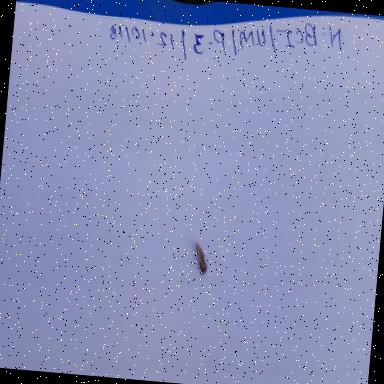 N BCI/UM/P.3/12.10/18